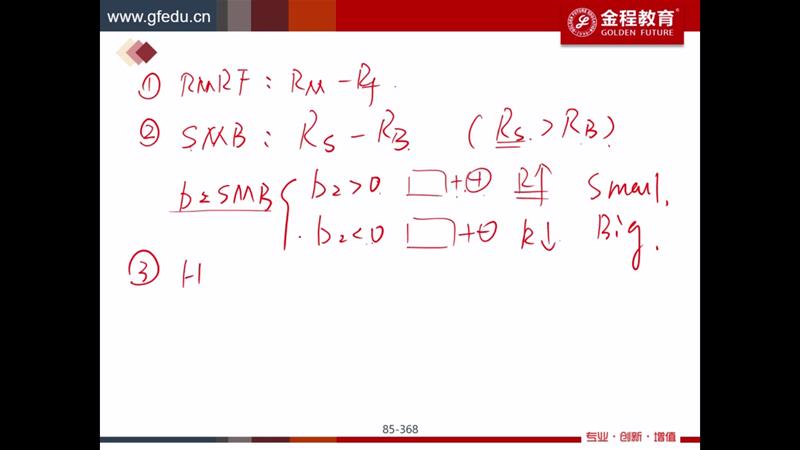 www.gfedu.cn
金程教育®
GOLDEN FUTURE
① RMRF : RM - Rf .
② SMB : RS - RB ( RS > RB )
b2SMB { b2>0 □+⊕ R↑ Small.
b2<0 □+⊖ R↓ Big.
③ H
85-368
专业·创新·增值